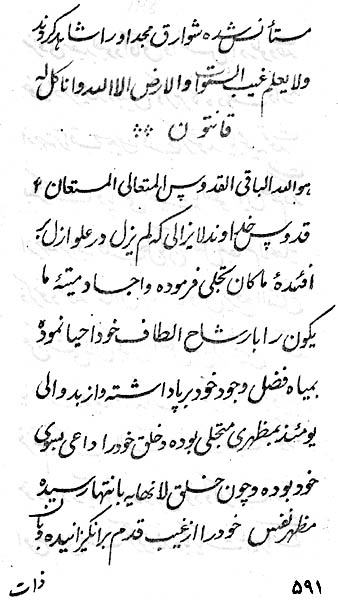 مستأنس شده شوارق مجد او را شاهد کردند
ولا یعلم غیب السموات والارض الا الله وانا کل له
قانتون ∵
هو الله الباقی القدوس المتعالی المستعان ۴
قدوس خداوند لایزالی که لم یزل در علو ازل بر
افئدهٔ ما کان تجلی فرموده و اجساد میتهٔ ما
یکون را بارشاح الطاف خود احیا نموده
بمیاه فضل وجود خود برپا داشته و از بدو الی
یومئذ بمظهری متجلی بوده و خلق خود را داعی بسوی
خود بوده و چون خلق لا نهایه بانتها رسیده
مظهر نفس خود را از غیب قدم برانگیزانیده و بآن
ذات
۵۹۱